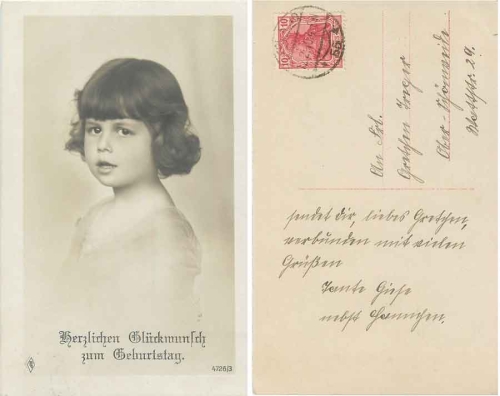 Herzlichen Glückwunsch
zum Geburtstag.
4726/3
10 10
An Frl.
Gretchen
Ober-Schöneweide
29.
sendet dir, liebes Gretchen,
verbunden mit vielen
Grüßen
Tante Giese
nebst Hannchen.